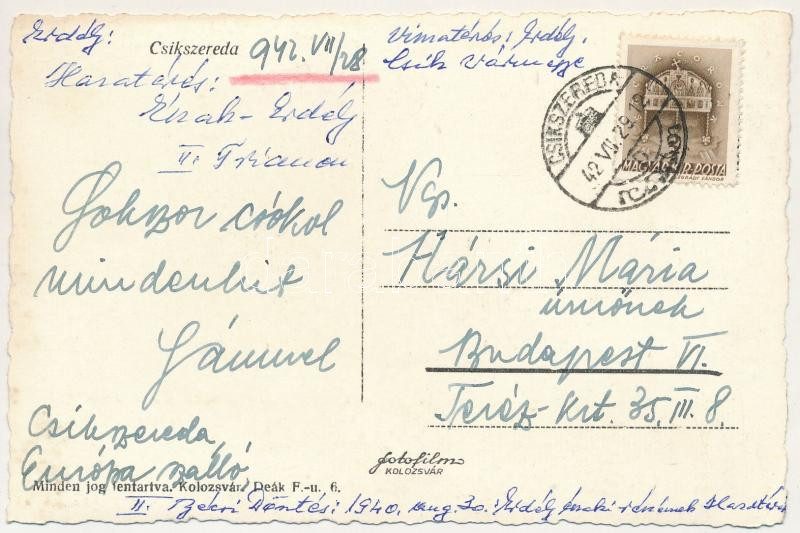 Erdély:
Csikszereda 942. VII/28
Hazatérés:
Észak-Erdély
II. Trianon
Sokszor csókol
mindenkit
Sámuel
Csíkszereda,
Európa szálló,
Minden jog fentartva. Kolozsvár. Deák F.-u. 6.
Visszatérés: Erdély.
Csík Vármegye
CSIKSZEREDA
42 VII. 29. 18
MAGYAR KIR. POSTA
Ngs.
Hársi Mária
úrnőnek
Budapest VI.
Teréz-krt. 35. III. 8.
fotofilm
KOLOZSVÁR
II. Bécsi Döntés: 1940. aug. 30. Erdély északi részének Hazatérése